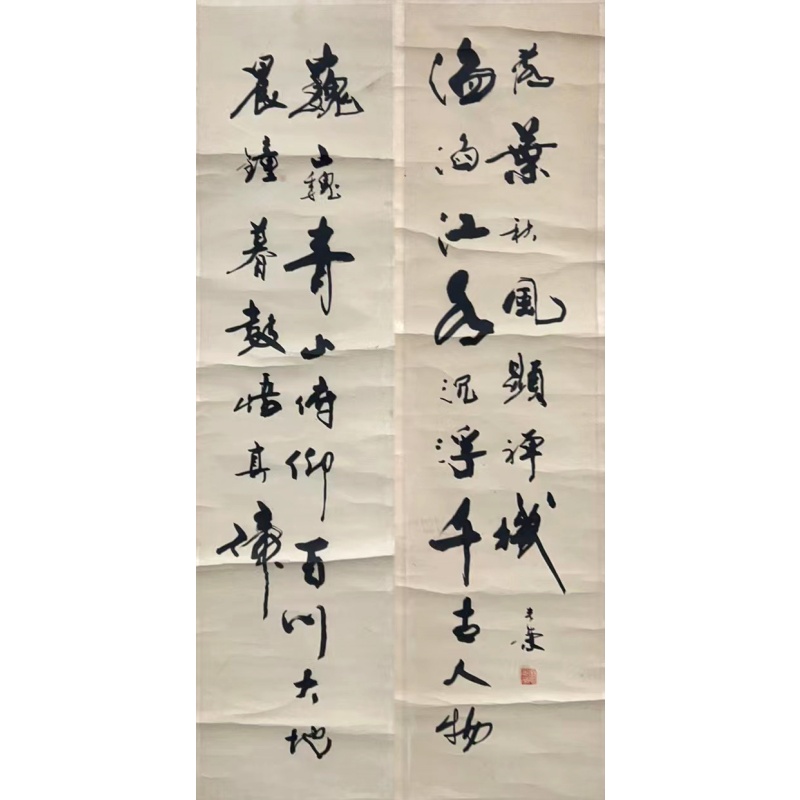 巍巍青山俯仰百川大地
晨鐘暮鼓悟真諦
滔滔江水沉浮千古人物
落葉秋風顯禪機